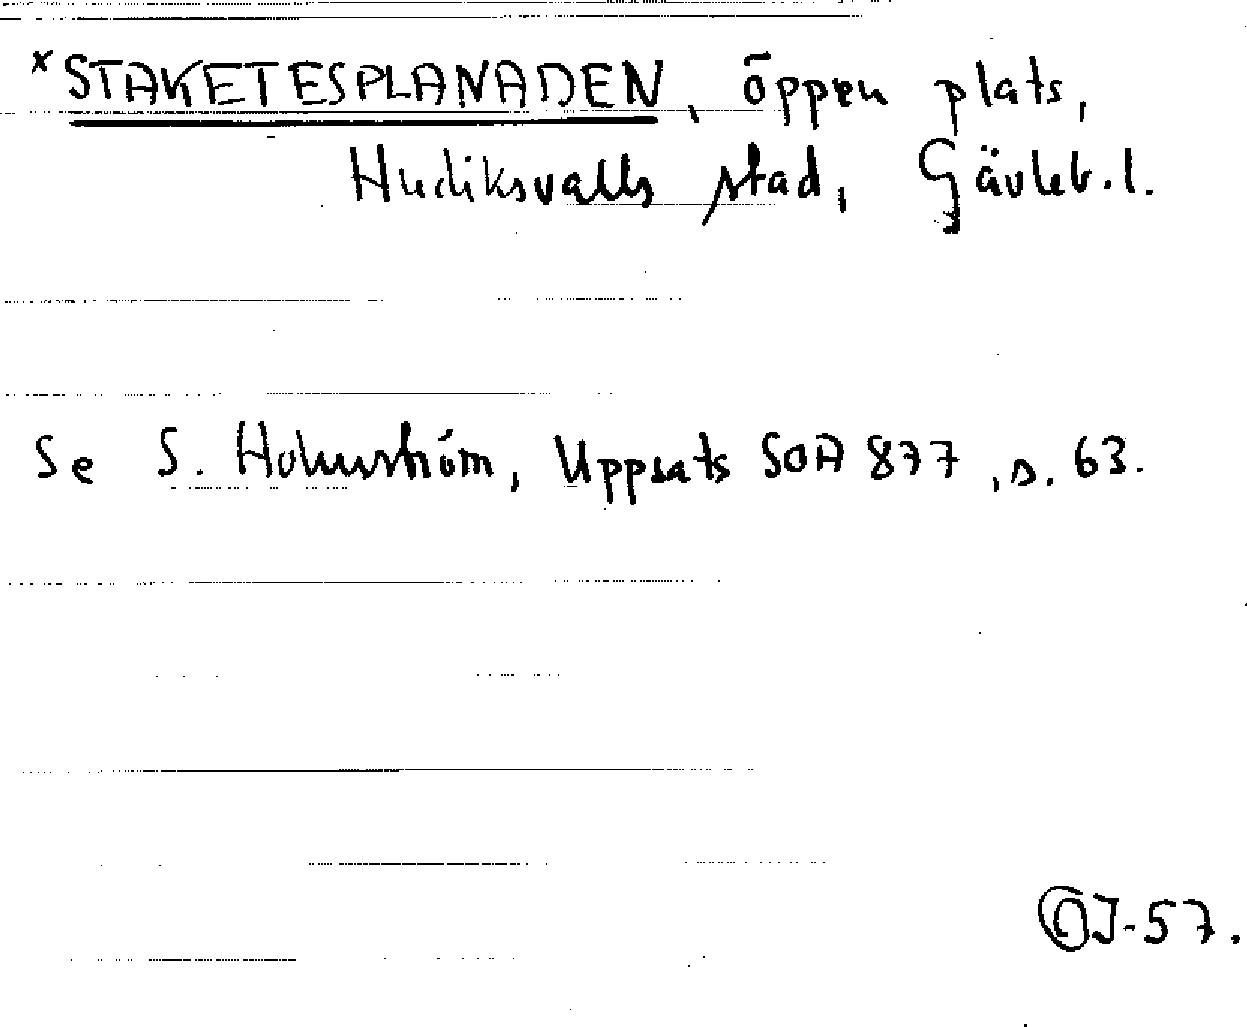 *STAKETESPLANADEN, öppen plats,
Hudiksvalls stad, Gävleb.l.
Se S. Holmström, Uppsats SOA 877, s. 63.
OJ-57.